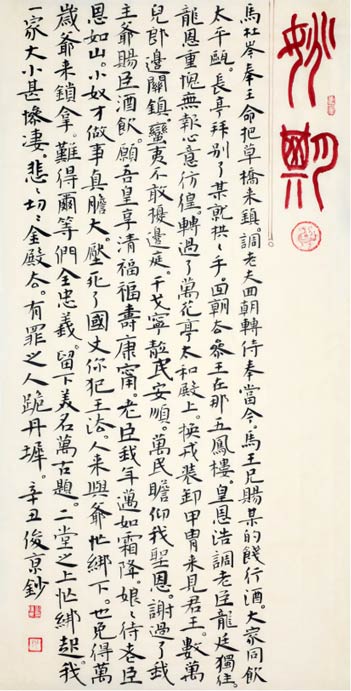 妙
馬杜岑奉王命把草橋來鎮。調老夫回朝轉侍奉當今。馬王兄賜某的餞行酒。大家同飲
太平甌。長亭拜別了某就拱々手。回朝合參王在那五鳳樓。皇恩浩調老臣龍廷獨住
龍恩重愧無報心意彷徨。轉過了萬花亭太和殿上。換戎裝卸甲冑來見君王。數萬
兒郎邊關鎮。蠻夷不敢擾邊庭。干戈寧靜民安順。萬民瞻仰我聖恩。謝過了我
主爺賜臣酒飲。願吾皇享清福福壽康甯。老臣我年邁如霜降娘々待老臣
恩如山。小奴才做事真膽大。壓死了國丈你犯王法。人來與爺忙綁下。也免得萬
歲爺來鎖拿。難得爾等們全忠義。留下美名萬古題。二堂之上忙綁起。我
一家大小甚慘淒。悲々切々金殿去。有罪之人跪丹墀。辛丑俊京鈔